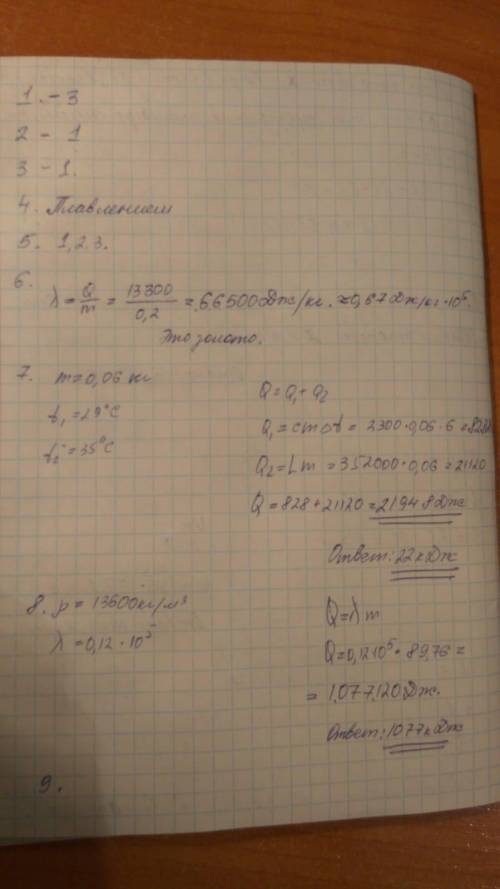 1. - 3
2 - 1
3 - 1.
4. Плавлением
5. 1, 2. 3.
6.
λ = Q/m = 13300/0,2 = 66500 Дж/кг. ≈ 0,67 Дж/кг · 10⁵.
Это золото.
7. m = 0,06 кг
t₁ = 29°C
t₂ = 35°C
Q = Q₁ + Q₂
Q₁ = cmΔt = 2300 · 0,06 · 6 = 828
Q₂ = Lm = 352000 · 0,06 = 21120
Q = 828 + 21120 = 21948 Дж
Ответ: 22 кДж
8. ρ = 13600 кг/м³
λ = 0,12 · 10⁵
Q = λ m
Q = 0,12 10⁵ · 89,76 =
= 1.077.120 Дж.
Ответ: 1077 кДж
9.